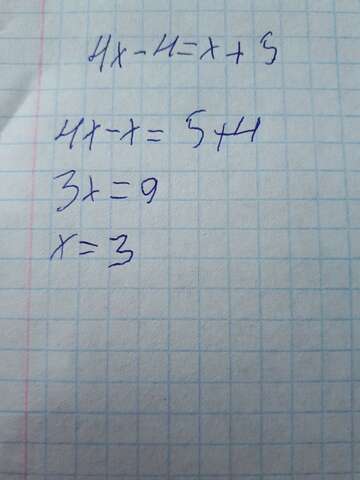 4x-4=x+5
4x-x=5+4
3x=9
x=3